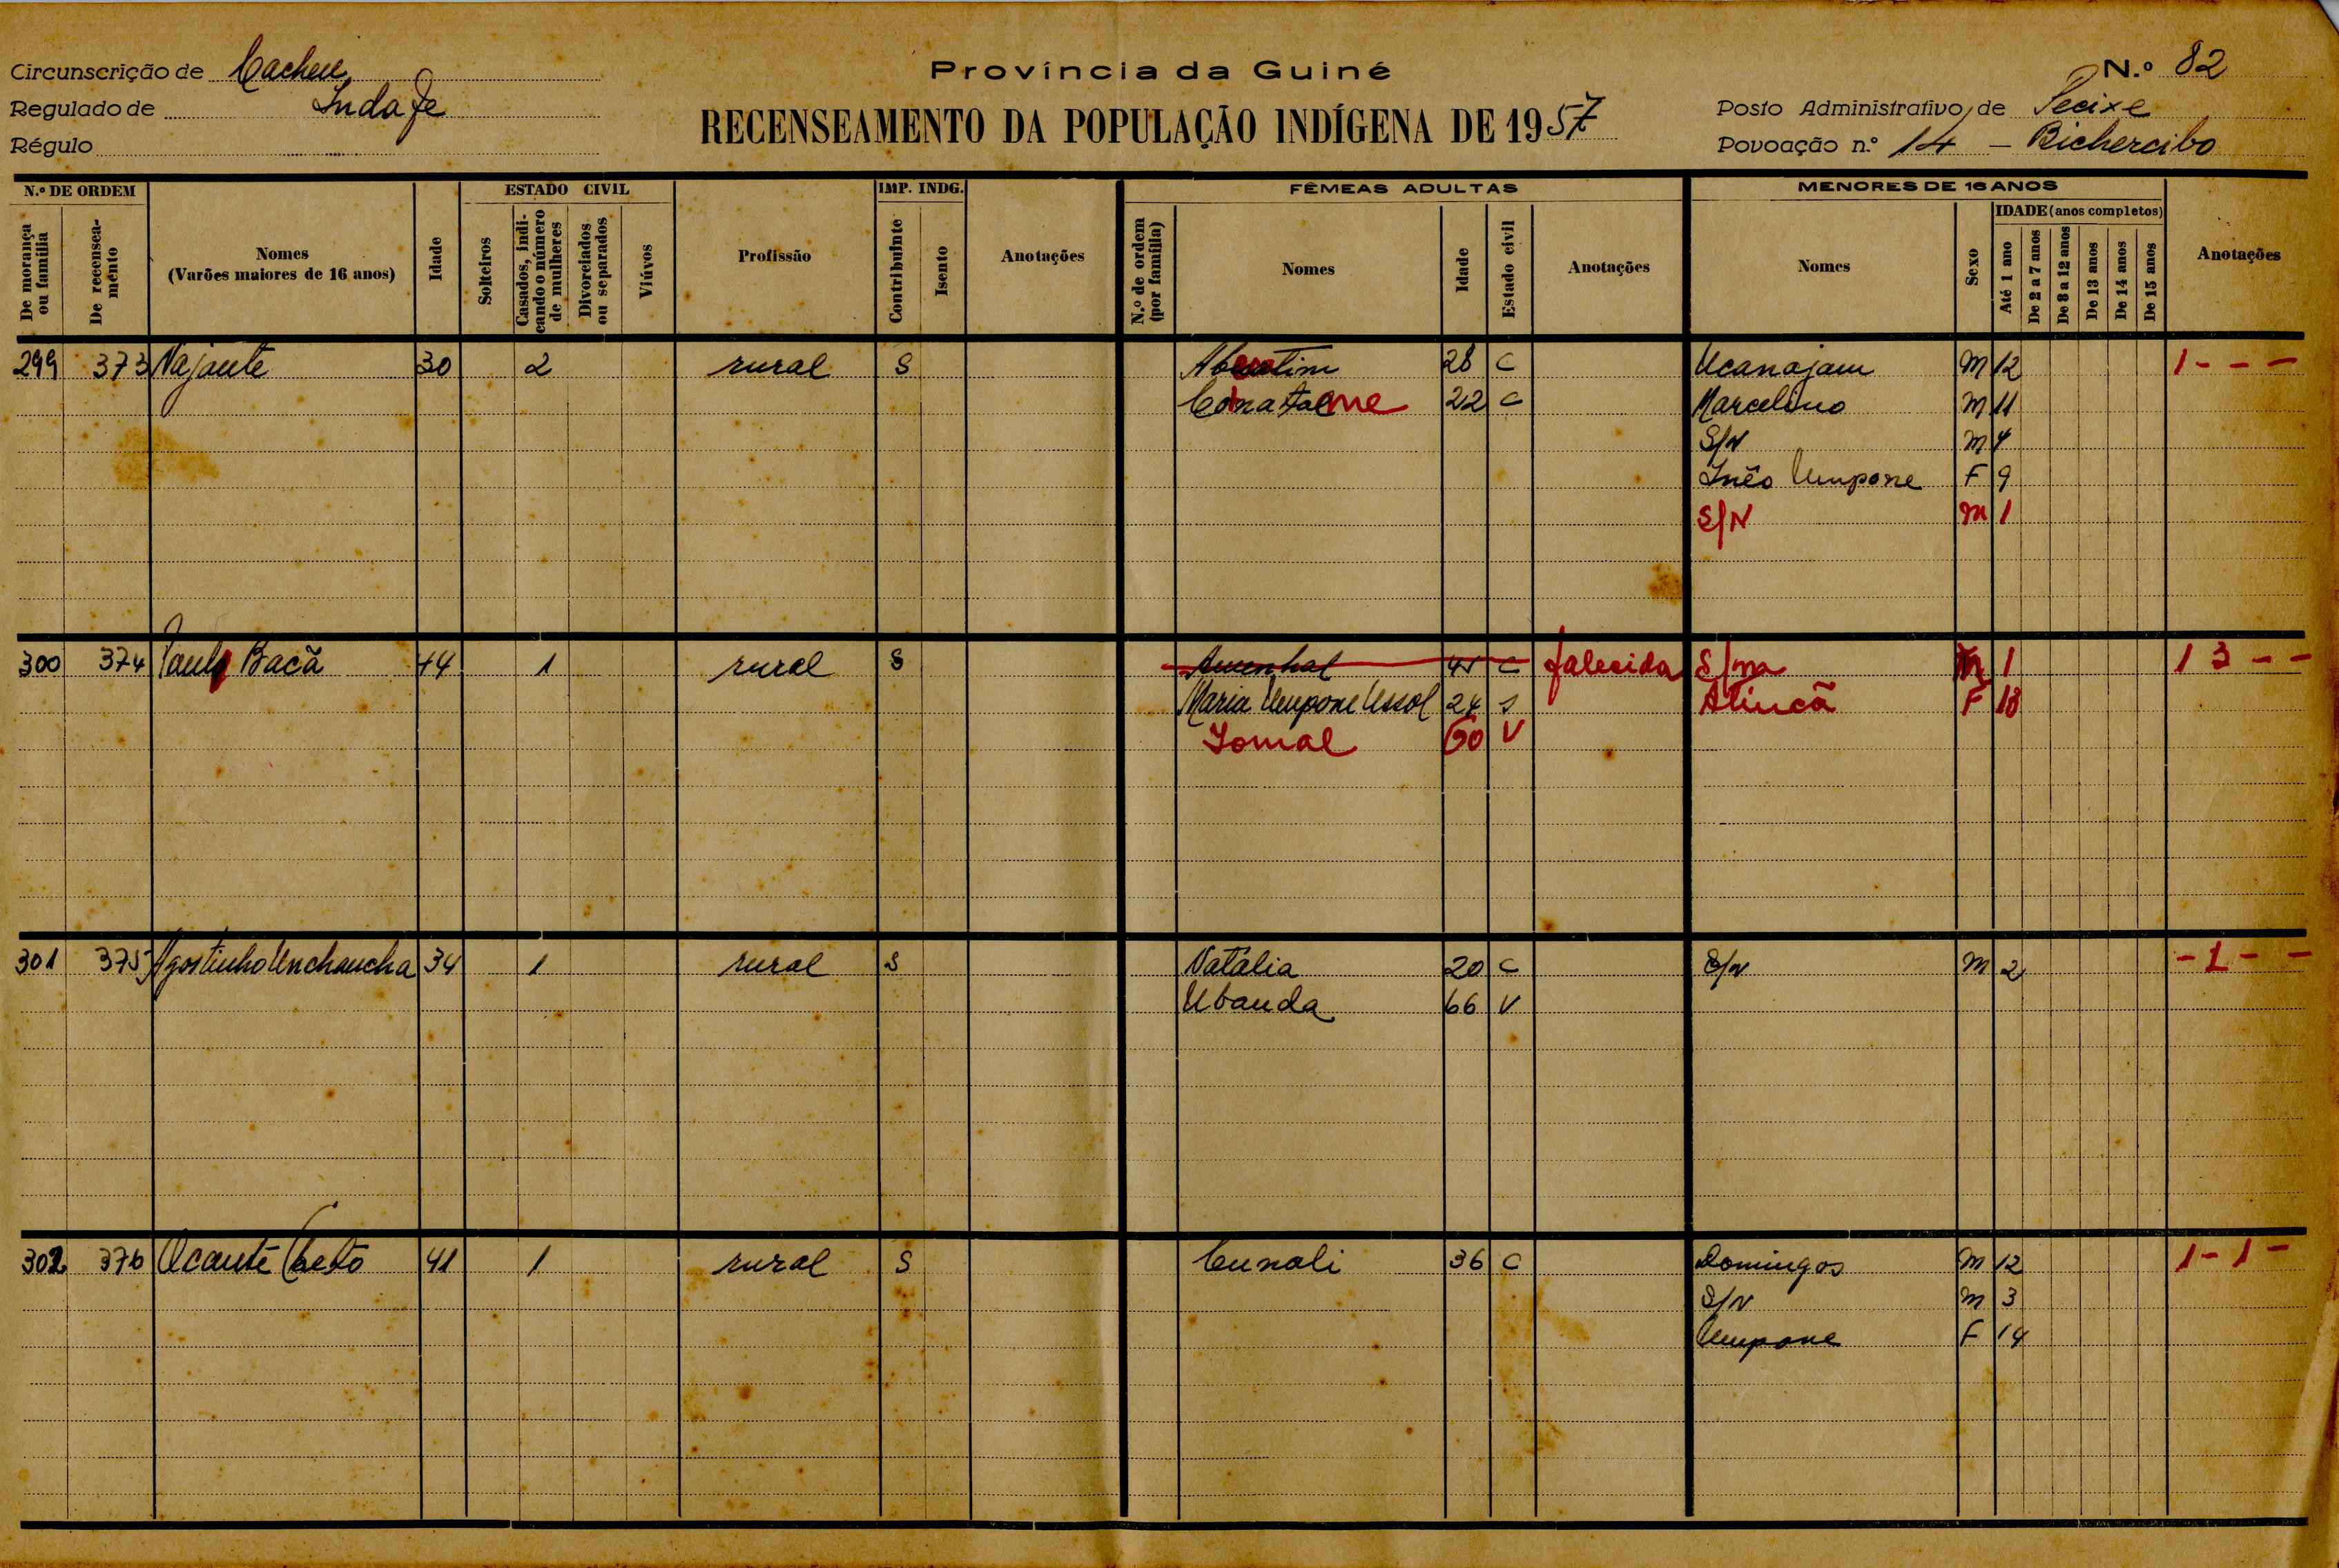 Circunscrição de Cacheu
Província da Guiné
N.º 82
Regulado de Indafe
RECENSEAMENTO DA POPULAÇÃO INDÍGENA DE 1957
Posto Administrativo de Pecixe
Régulo
Povoação n.º 14 - Bichercibo
N.º DE ORDEM
De morança ou família
De recenseamento
Nomes
(Varões maiores de 16 anos)
Idade
ESTADO CIVIL
Solteiros
Casados, indicando o número de mulheres
Divorciados ou separados
Viúvos
Profissão
IMP. INDG.
Contribuinte
Isento
Anotações
FÊMEAS ADULTAS
N.º de ordem (por família)
Nomes
Idade
Estado civil
Anotações
MENORES DE 16 ANOS
Nomes
Sexo
IDADE (anos completos)
Até 1 ano
De 2 a 7 anos
De 8 a 12 anos
De 13 anos
De 14 anos
De 15 anos
Anotações
299 373 Najante 30 2 rural S 28 C Ucanajam M 12 1 - - -
22 C Marcelino M 11
S/N M 4
Inês Umpone F 9
S/N M 1
300 374 Paulo Bacã 44 1 rural S Amenhal C falecida S/na M 1 1 3 - -
Maria Umpone Ussol 24 S Atincã F 13
Jomal 60 V
301 375 Agostinho Unchaucha 34 1 rural S Natália 20 C S/N M 2 - 1 - -
Ubanda 66 V
302 376 Ucanté Cheto 41 1 rural S Cunali 36 C Domingos M 12 1 - 1 -
S/N M 3
Umpone F 14